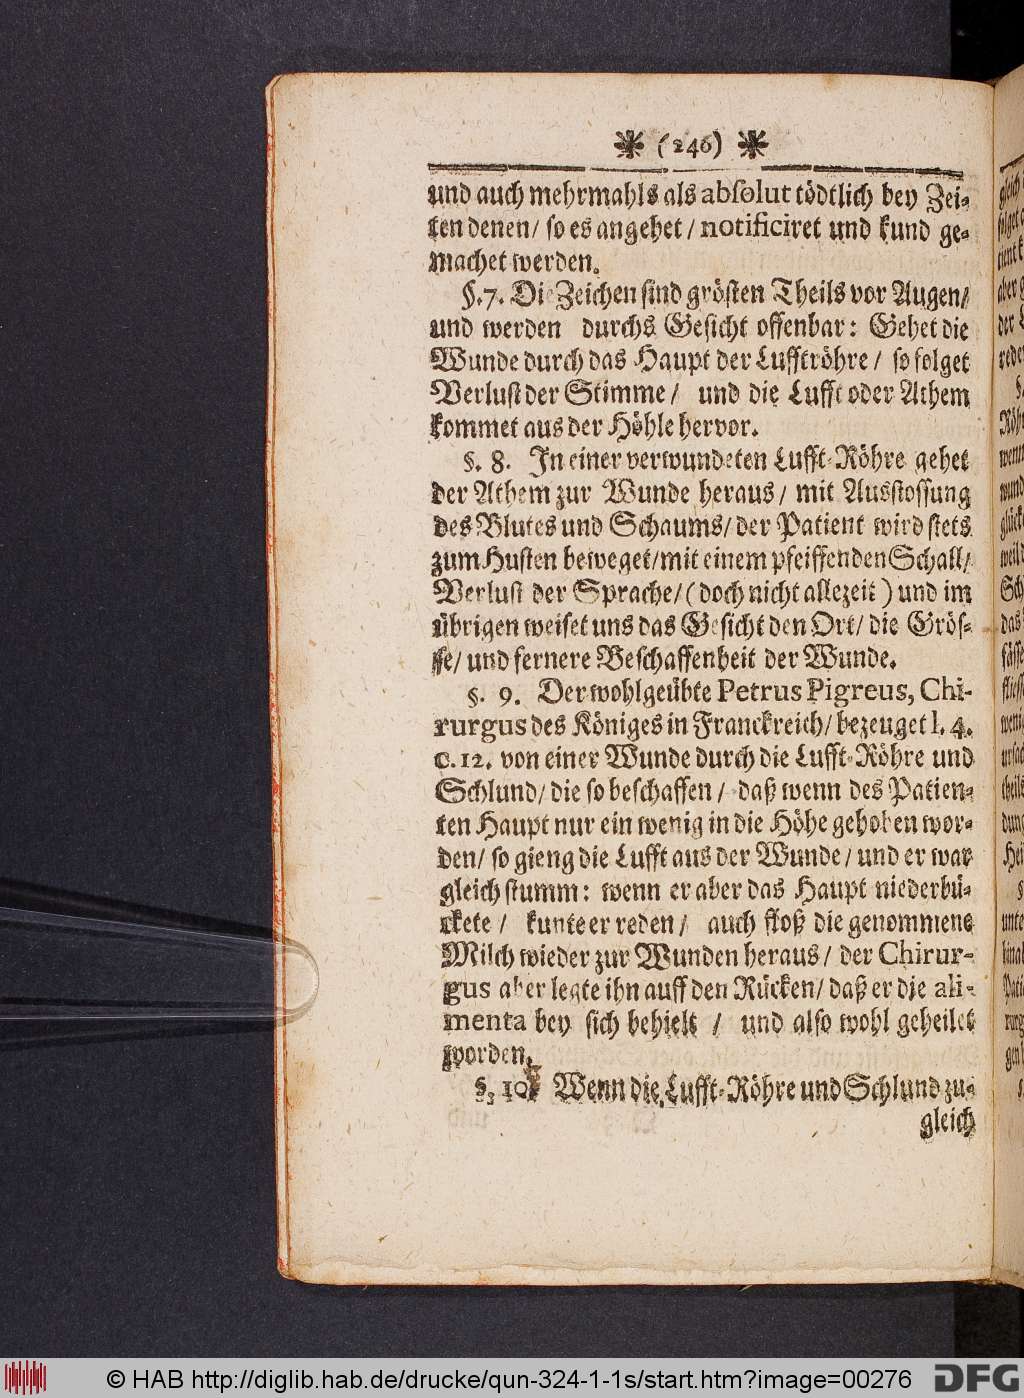 (246)
und auch mehrmahls als absolut tödtlich bey Zei-
ten denen / so es angehet / notificiret und kund ge-
machet werden.
§.7. Die Zeichen sind grösten Theils vor Augen/
und werden durchs Gesicht offenbar: Gehet die
Wunde durch das Haupt der Lufftröhre / so folget
Verlust der Stimme / und die Lufft oder Athem
kommet aus der Höhle hervor.
§. 8. In einer verwundeten Lufft-Röhre gehet
der Athem zur Wunde heraus / mit Ausstossung
des Blutes und Schaums / der Patient wird stets
zum Husten beweget / mit einem pfeiffenden Schall /
Verlust der Sprache / ( doch nicht allezeit ) und im
übrigen weiset uns das Gesicht den Ort / die Grös-
se / und fernere Beschaffenheit der Wunde.
§. 9. Der wohlgeübte Petrus Pigreus, Chi-
rurgus des Königes in Franckreich / bezeuget l. 4.
c. 12. von einer Wunde durch die Lufft-Röhre und
Schlund / die so beschaffen / daß wenn des Patien-
ten Haupt nur ein wenig in die Höhe gehoben wor-
den / so gieng die Lufft aus der Wunde / und er war
gleich stumm: wenn er aber das Haupt niederbü-
ckete / kunte er reden / auch floß die genommene
Milch wieder zur Wunden heraus / der Chirur-
gus aber legte ihn auff den Rücken / daß er die ali-
menta bey sich behielt / und also wohl geheilet
worden.
§. 10. Wenn die Lufft-Röhre und Schlund zu-
gleich
© HAB http://diglib.hab.de/drucke/qun-324-1-1s/start.htm?image=00276
DFG